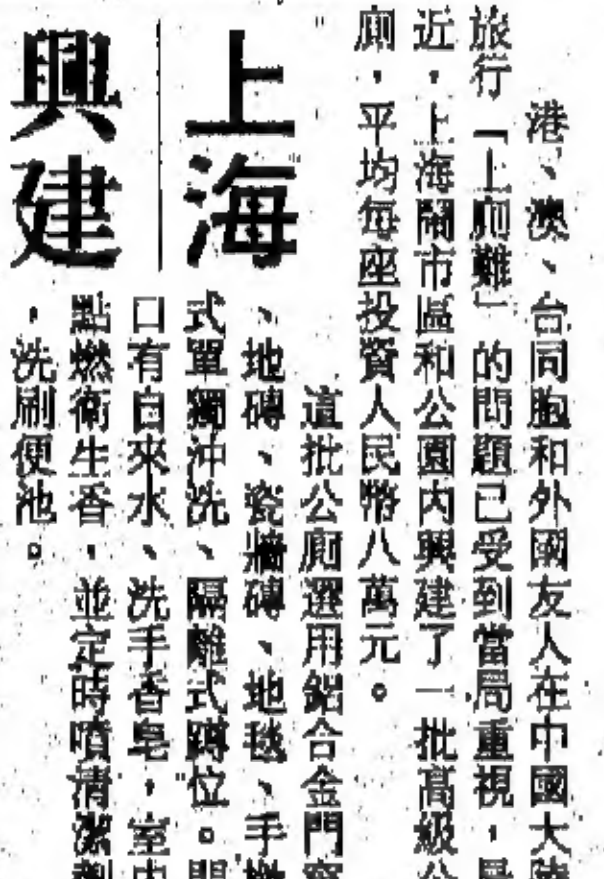 上海
興建
港、澳、台同胞和外國友人在中國大陸
旅行「上廁難」的問題已受到當局重視，最
近，上海鬧市區和公園內興建了一批高級公
廁，平均每座投資人民幣八萬元。
這批公廁選用鋁合金門窗
、地磚、瓷牆磚、地毯、手
式單獨沖洗、隔離式蹲位。
口有自來水、洗手香皂，室內
點燃衛生香，並定時噴清潔劑
，洗刷便池。